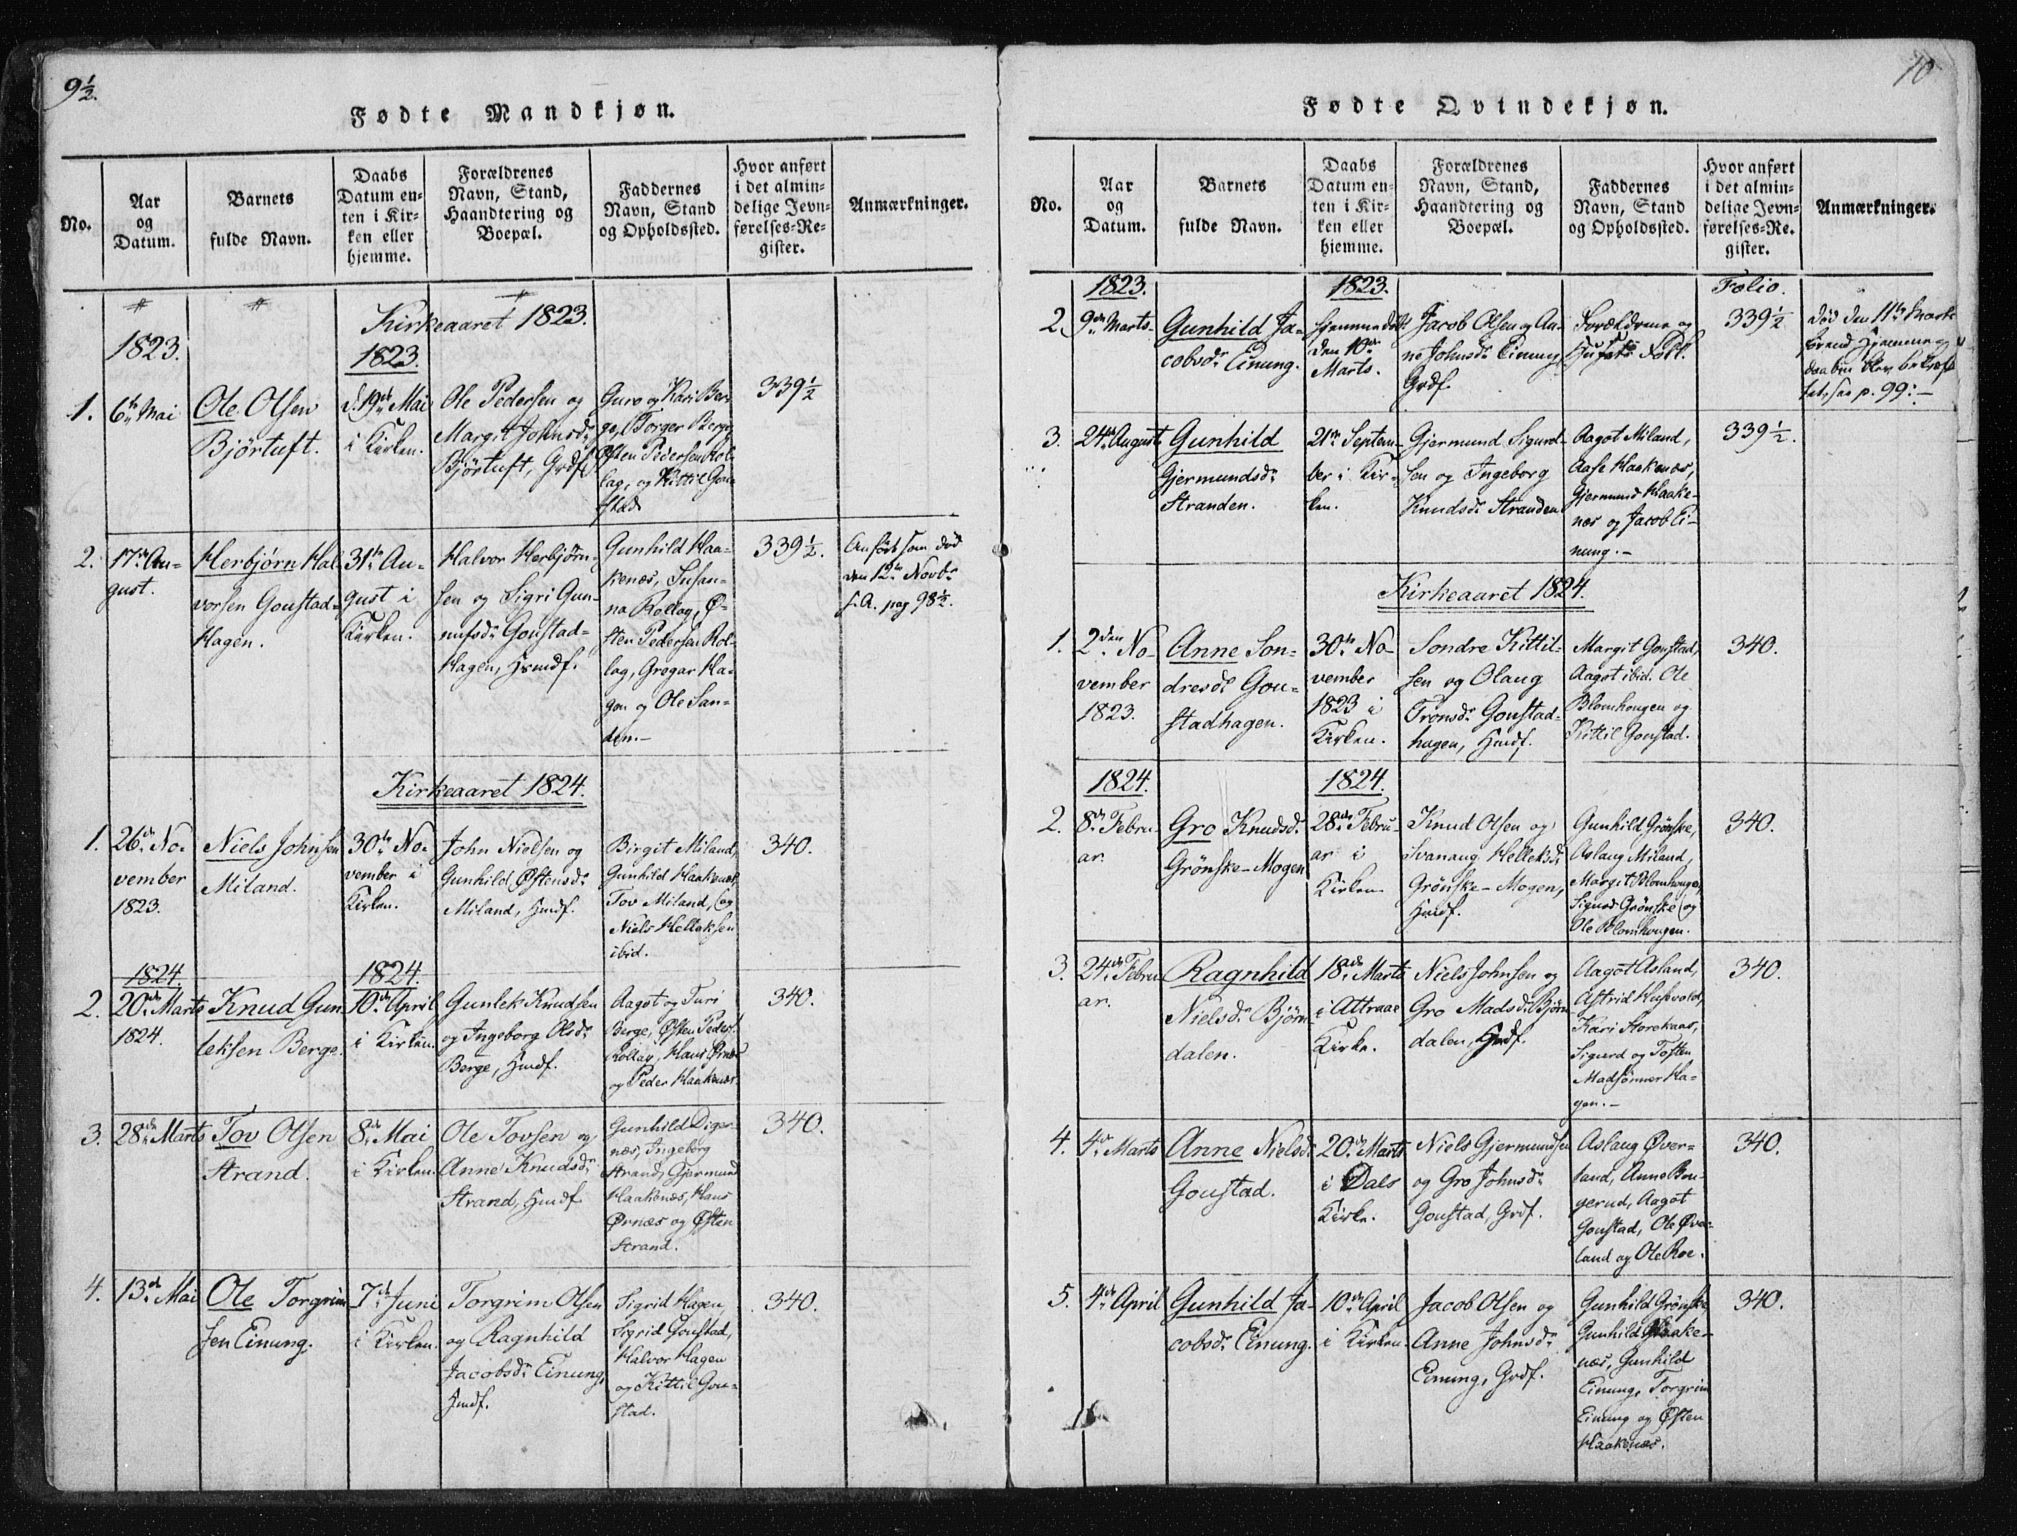 9½.
Fødte Mandkjøn.
No.
Aar
og
Datum.
Barnets
fulde Navn.
Daabs
Datum en-
ten i Kir-
ken eller
hjemme.
Forældrenes
Navn, Stand,
Haandtering og
Boepæl.
Faddernes
Navn, Stand
og Opholdssted.
Hvor anført
i det almin-
delige Jevn-
førelses-Re-
gister.
Anmærkninger.
Kirkeaaret 1823.
1823.
1823.
1.
6te Mai
Ole Olsen
Bjørtuft.
d. 19de Mai
i Kirken.
Ole Pedersen og
Margit Johnsdr
Bjørtuft, Grdf.
Guro og Kari Ber-
ge, Torger Berge,
Østen Pedersen Rol-
lag, og Kittil Gou-
stad.
339½
2.
17de Au-
gust.
Herbjørn Hal-
vorsen Goustad-
Hagen.
31te Au-
gust i
Kirken.
Halvor Herbjørn-
sen og Sigri Gun-
nufsdr Goustad-
Hagen, Hmdf.
Gunhild Haa-
kenæs, Susan-
na Rollag, Ø-
sten Pedersen Rol-
lag, Gregar Ha-
gen og Ole San-
den.-
339½.
Anført som død
den 12te Novbr
s.A. pag 98½.
Kirkeaaret 1824.
1.
26de No-
vember
1823.
Niels Johnsen
Miland.
30te No-
vember i
Kirken.
John Nielsen og
Gunhild Østensdr
Miland, Hmdf.
Birgit Miland,
Gunhild Haakenæs,
Tov Miland, og
Niels Helleksen
ibid.
340.
1824.
1824.
2.
20de Marts
1824.
Knud Gun
leksen Berge.
10de April
i Kirken.
Gunlek Knudsen
og Ingeborg Olsdr
Berge, Hmdf.
Aagot og Turi
Berge, Østen Peders.
Rollag, Hans Ørnæs
og Peder Haakenæs.
340.
3.
28de Marts
Tov Olsen
Strand.
8de Mai
i Kirken.
Ole Tovsen og
Anne Knudsdr
Strand, Hmdf.
Gunhild Diger-
næs, Ingeborg
Strand, Gjermund
Haakenæs, Hans
Ørnæs og Østen
Strand.
340.
4.
13de Mai
Ole Torgrim-
sen Einung.
7de Juni
i Kirken.
Torgrim Olsen
og Ragnhild
Jacobsdr Einung,
Hmdf.
Sigrid Hagen,
Sigrid Goustad,
Halvor Hagen
og Kittil Gou-
stad.
340.
10
Fødte Qvindekjøn.
No.
Aar
og
Datum.
Barnets
fulde Navn.
Daabs
Datum en-
ten i Kir-
ken eller
hjemme.
Forældrenes
Navn, Stand,
Haandtering og
Boepæl.
Faddernes
Navn, Stand
og Opholdssted.
Hvor anført
i det almin-
delige Jevn-
førelses-Re-
gister.
Anmærkninger.
1823.
1823.
Folio.
2.
9de Marts
Gunhild Ja-
cobsdr Einung.
Hjemmedøbt
den 10de
Marts.
Jacob Olsen og An-
ne Johnsdr Einung
Grdf.
Forældrene og
Husets Folk.
339½
død den 11te Marts
førend Hjemme-
daaben blev bekræf-
tet, see p. 99.-
3.
24de August
Gunhild
Gjermundsdr
Stranden.
21de Septem-
ber i Kir-
ken.
Gjermund Sigurd-
sen og Ingeborg
Knudsdr Stranden
Aagot Miland,
Aase Haakenæs,
Gjermund Haake-
næs og Jacob Ei-
nung.-
339½.
Kirkeaaret 1824.
1.
2den No-
vember
1823.
Anne Son-
dresdr Gou-
stadhagen.
30te No-
vember
1823 i
Kirken.
Sondre Kittil-
sen og Olaug
Tronsdr Goustad-
hagen, Hmdf.
Margit Goustad,
Aagot ibid. Ole
Blomhougen og
Kittil Goustad.
340.
1824.
1824.
2.
8de Febru-
ar.
Gro Knudsdr
Grønske-Mogen
28de Febru-
ar i
Kirken.
Knud Olsen og
Svanaug Helleksdr
Grønske-Mogen,
Hmdf.
Gunhild Grønske,
Aslaug Miland,
Margit Blomhougen,
Sigurd Grønske og
Ole Blomhougen.
340.
3.
24de Febru
ar.
Ragnhild
Nielsdr Bjørn
dalen.
18de Marts
i Attraae
Kirke.
Niels Johnsen og
Gro Madsdr Bjørn
dalen, Hmdf.
Aagot Asland,
Astrid Husvold,
Kari Storekaas,
Sigurd og Tosten
Madsønner Ha-
gen.-
340.
4.
4de Marts
Anne Nielsdr
Goustad.
20de Marts
i Dals
Kirke.
Niels Gjermundsen
og Gro Johnsdr
Goustad, Grdf.
Aslaug Øver-
land, Anne Bou-
gerud, Aagot
Goustad, Ole Øver-
land og Ole Roe.
340.
5.
4de April
Gunhild Ja-
cobsdr Einung.
10de April
i Kirken.
Jacob Olsen og
Anne Johnsdr
Einung, Grdf.
Gunhild Grønske,
Gunhild Haake-
næs, Gunhild
Einung, Torgrim
Einung og Østen
Haakenæs.
340.